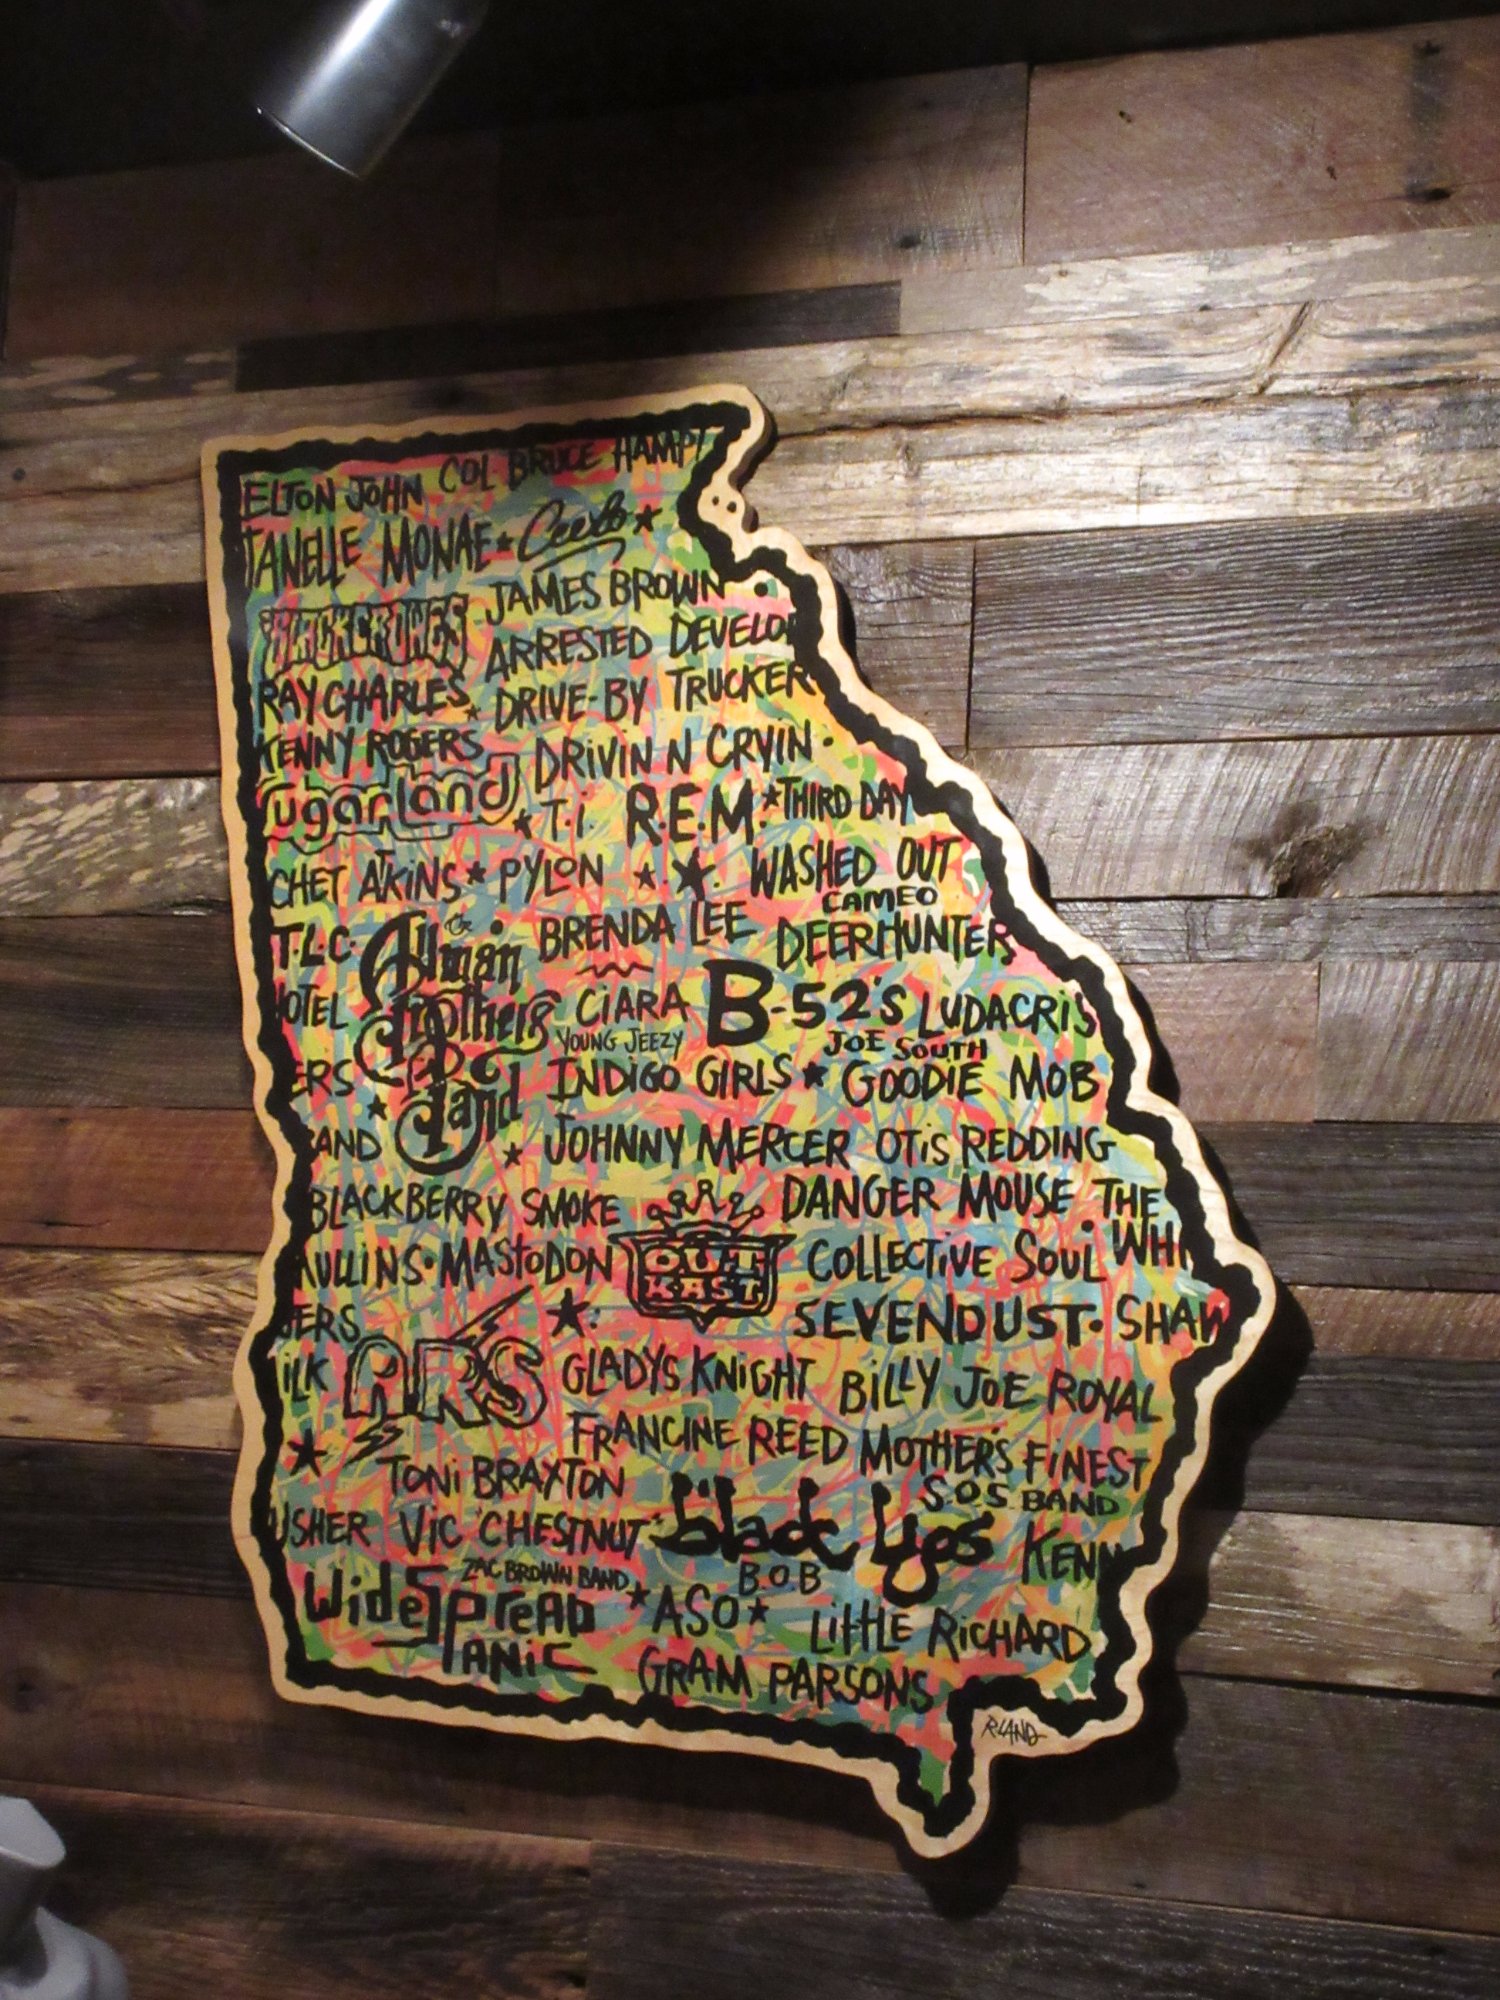 COL BRUCE HAMPT
ELTON JOHN
JANELLE MONAE CeeLo
JAMES BROWN
BLACK CROWES
ARRESTED DEVELOP
RAY CHARLES DRIVE-BY TRUCKER
KENNY ROGERS DRIVIN N CRYIN
Sugarland T.I. R.E.M. THIRD DAY
CHET ATKINS PYLON WASHED OUT
CAMEO
T.L.C. Allman BRENDA LEE DEERHUNTER
HOTEL Brothers CIARA B-52'S LUDACRIS
YOUNG JEEZY JOE SOUTH
ERS Band INDIGO GIRLS GOODIE MOB
AND JOHNNY MERCER OTIS REDDING
BLACKBERRY SMOKE DANGER MOUSE THE
MULLINS MASTODON OUT KAST COLLECTIVE SOUL WHI
ERS SEVENDUST SHAW
ILK ARS GLADYS KNIGHT BILLY JOE ROYAL
FRANCINE REED MOTHER'S FINEST
TONI BRAXTON S.O.S BAND
USHER VIC CHESTNUT black lips KENN
ZAC BROWN BAND B.O.B
WideSpreAD ASO LittLE RICHARD
PANiC GRAM PARSONS
R.LAND